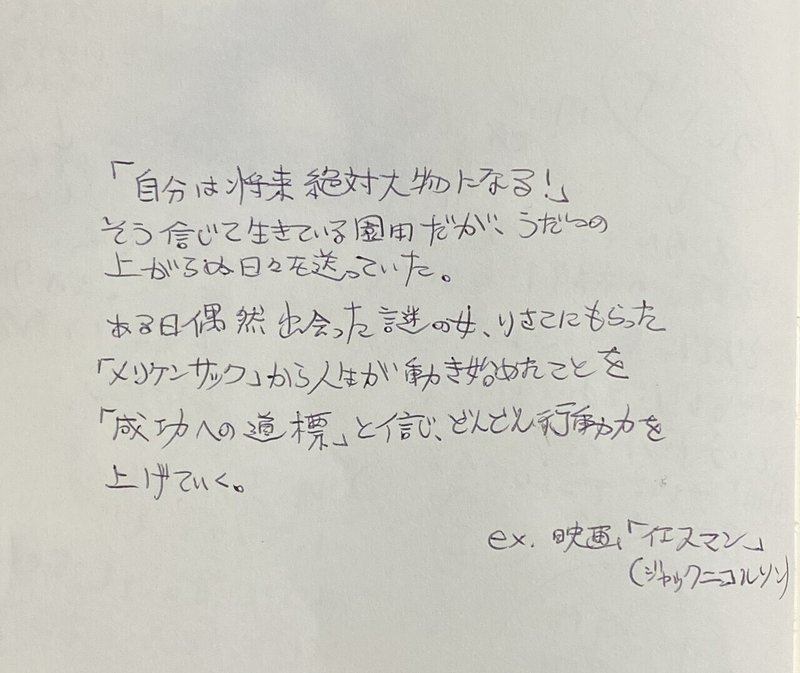 「自分は将来絶対大物になる!」
そう信じて生きている園田だが、うだつの
上がらぬ日々を送っていた。
ある日偶然出会った謎の女、りさこにもらった
「メリケンサック」から人生が動き始めたことを
「成功への道標」と信じ、どんどん行動力を
上げていく。
ex. 映画「イエスマン」
(ジャックニコルソン)